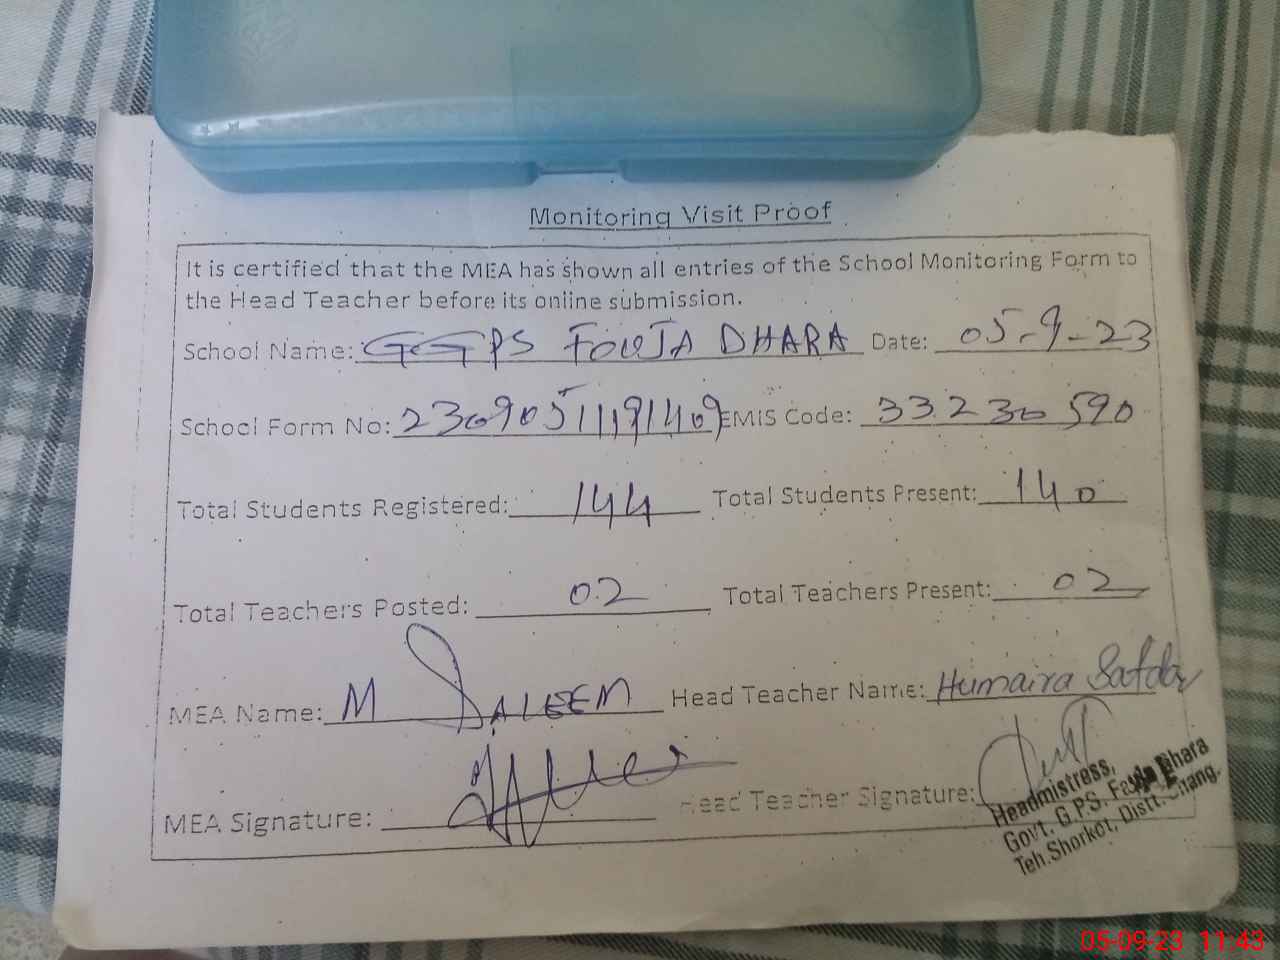 Monitoring Visit Proof
It is certified that the MEA has shown all entries of the School Monitoring Form to
the Head Teacher before its online submission.
School Name: GGPS FOUJA DHARA Date: 05-9-23
School Form No: 23090511191409 EMIS Code: 33230590
Total Students Registered: 144 Total Students Present: 140
Total Teachers Posted: 02 Total Teachers Present: 02
MEA Name: M SALEEM Head Teacher Name: Humaira Safdar
MEA Signature: Head Teacher Signature:
Headmistress,
Govt. G.P.S. Dhara
Teh.Shorkot, Distt.
05-09-23 11:43